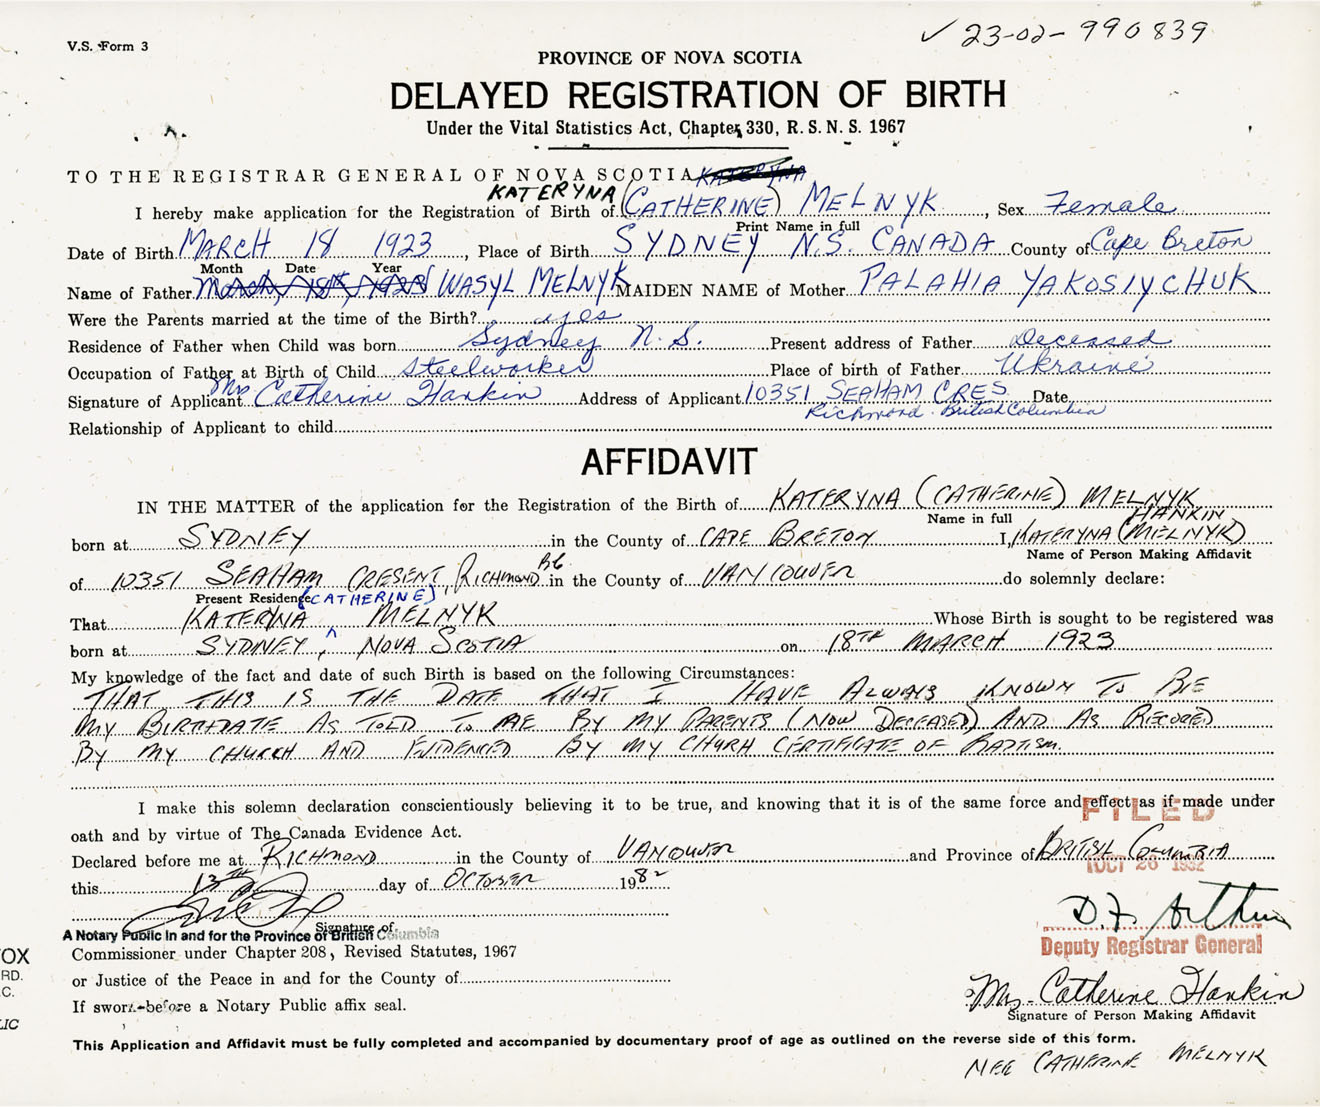 V.S. Form 3
✓ 23-02-990839
PROVINCE OF NOVA SCOTIA
DELAYED REGISTRATION OF BIRTH
Under the Vital Statistics Act, Chapter 330, R. S. N. S. 1967
TO THE REGISTRAR GENERAL OF NOVA SCOTIA KATERYNA
KATERYNA
I hereby make application for the Registration of Birth of (CATHERINE) MELNYK, Sex Female
Print Name in full
Date of Birth MARCH 18 1923, Place of Birth SYDNEY N.S. CANADA County of Cape Breton
Month Date Year
Name of Father March 18th, 1923 WASYL MELNYK MAIDEN NAME of Mother PALAHIA YAKOSIYCHUK
Were the Parents married at the time of the Birth? yes
Residence of Father when Child was born Sydney N.S. Present address of Father Deceased
Occupation of Father at Birth of Child Steelworker Place of birth of Father Ukraine
Signature of Applicant Mrs Catherine Hankin Address of Applicant 10351 SEAHAM CRES. Date
Richmond British Columbia
Relationship of Applicant to child
AFFIDAVIT
IN THE MATTER of the application for the Registration of the Birth of KATERYNA (CATHERINE) MELNYK
Name in full HANKIN
born at SYDNEY in the County of CAPE BRETON I, KATERYNA (MELNYK)
Name of Person Making Affidavit
of 10351 SEAHAM CRESENT, RICHMOND BC in the County of VANCOUVER do solemnly declare:
Present Residence (CATHERINE)
That KATERYNA MELNYK Whose Birth is sought to be registered was
born at SYDNEY, NOVA SCOTIA on 18TH MARCH 1923
My knowledge of the fact and date of such Birth is based on the following Circumstances:
THAT THIS IS THE DATE THAT I HAVE ALWAYS KNOWN TO BE
MY BIRTHDATE AS TOLD TO ME BY MY PARENTS (NOW DECEASED) AND AS RECORED
BY MY CHURCH AND EVIDENCED BY MY CHURH CERTIFICATE OF BAPTISM.
I make this solemn declaration conscientiously believing it to be true, and knowing that it is of the same force and effect as if made under
FILED
oath and by virtue of The Canada Evidence Act.
Declared before me at RICHMOND in the County of VANOUVER and Province of BRITISH COLUMBIA
OCT 26 1982
this 13TH day of OCTOBER 1982
D.F. Arthur
Signature of
A Notary Public In and for the Province of British Columbia
Deputy Registrar General
Commissioner under Chapter 208, Revised Statutes, 1967
or Justice of the Peace in and for the County of
If sworn before a Notary Public affix seal.
OX
RD.
C.
LIC
Mrs. Catherine Hankin
Signature of Person Making Affidavit
This Application and Affidavit must be fully completed and accompanied by documentary proof of age as outlined on the reverse side of this form.
NEE CATHERINE MELNYK